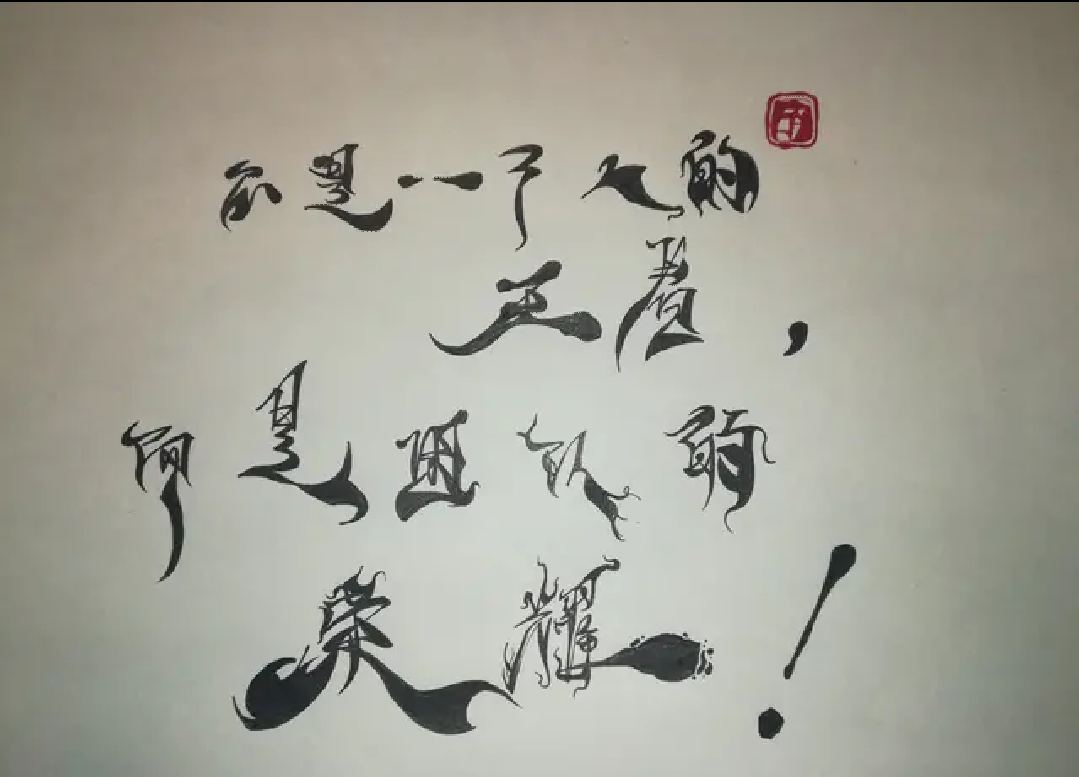 不是一个人的
王者，
而是团队的
荣耀！